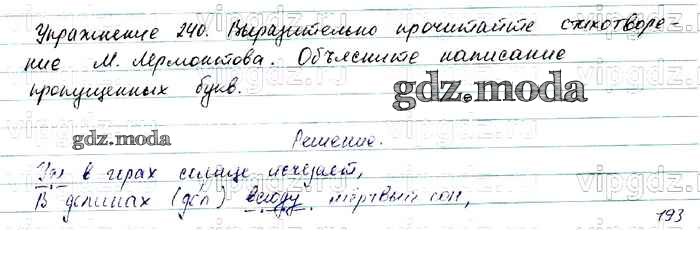 Упражнение 240. Выразительно прочитайте стихотворе-
ние М. Лермонтова. Объясните написание
пропущенных букв.
gdz.moda
gdz.moda
Решение.
в горах солнце исчезает,
В долинах (дол) всюду мёртвый сон,
193